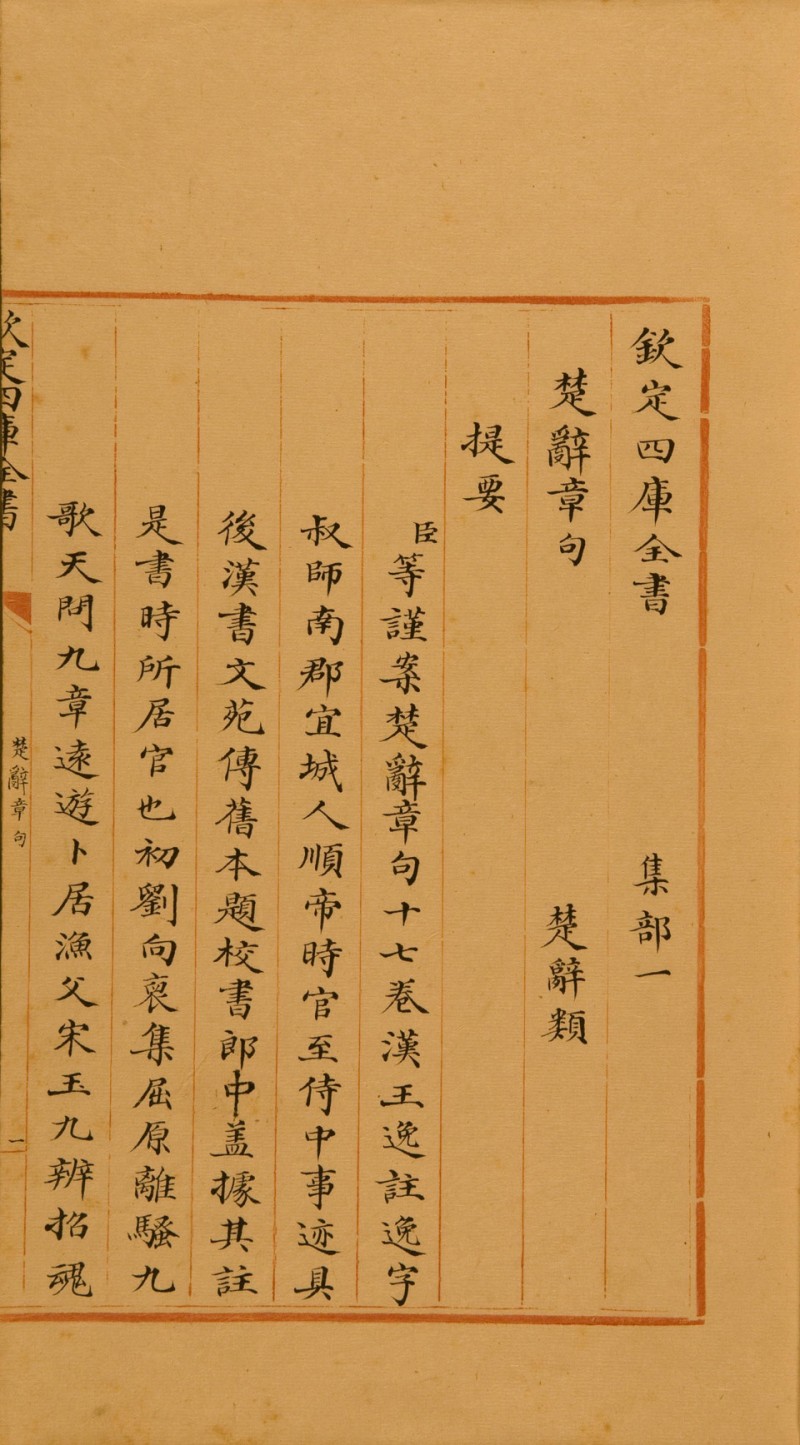 欽定四庫全書 集部一
楚辭章句 楚辭類
提要
臣等謹案楚辭章句十七卷漢王逸註逸字
叔師南郡宜城人順帝時官至侍中事迹具
後漢書文苑傳舊本題校書郎中盖據其註
是書時所居官也初劉向裒集屈原離騷九
歌天問九章逺遊卜居漁父宋玉九辨招魂
欽定四庫全書
楚辭章句
一